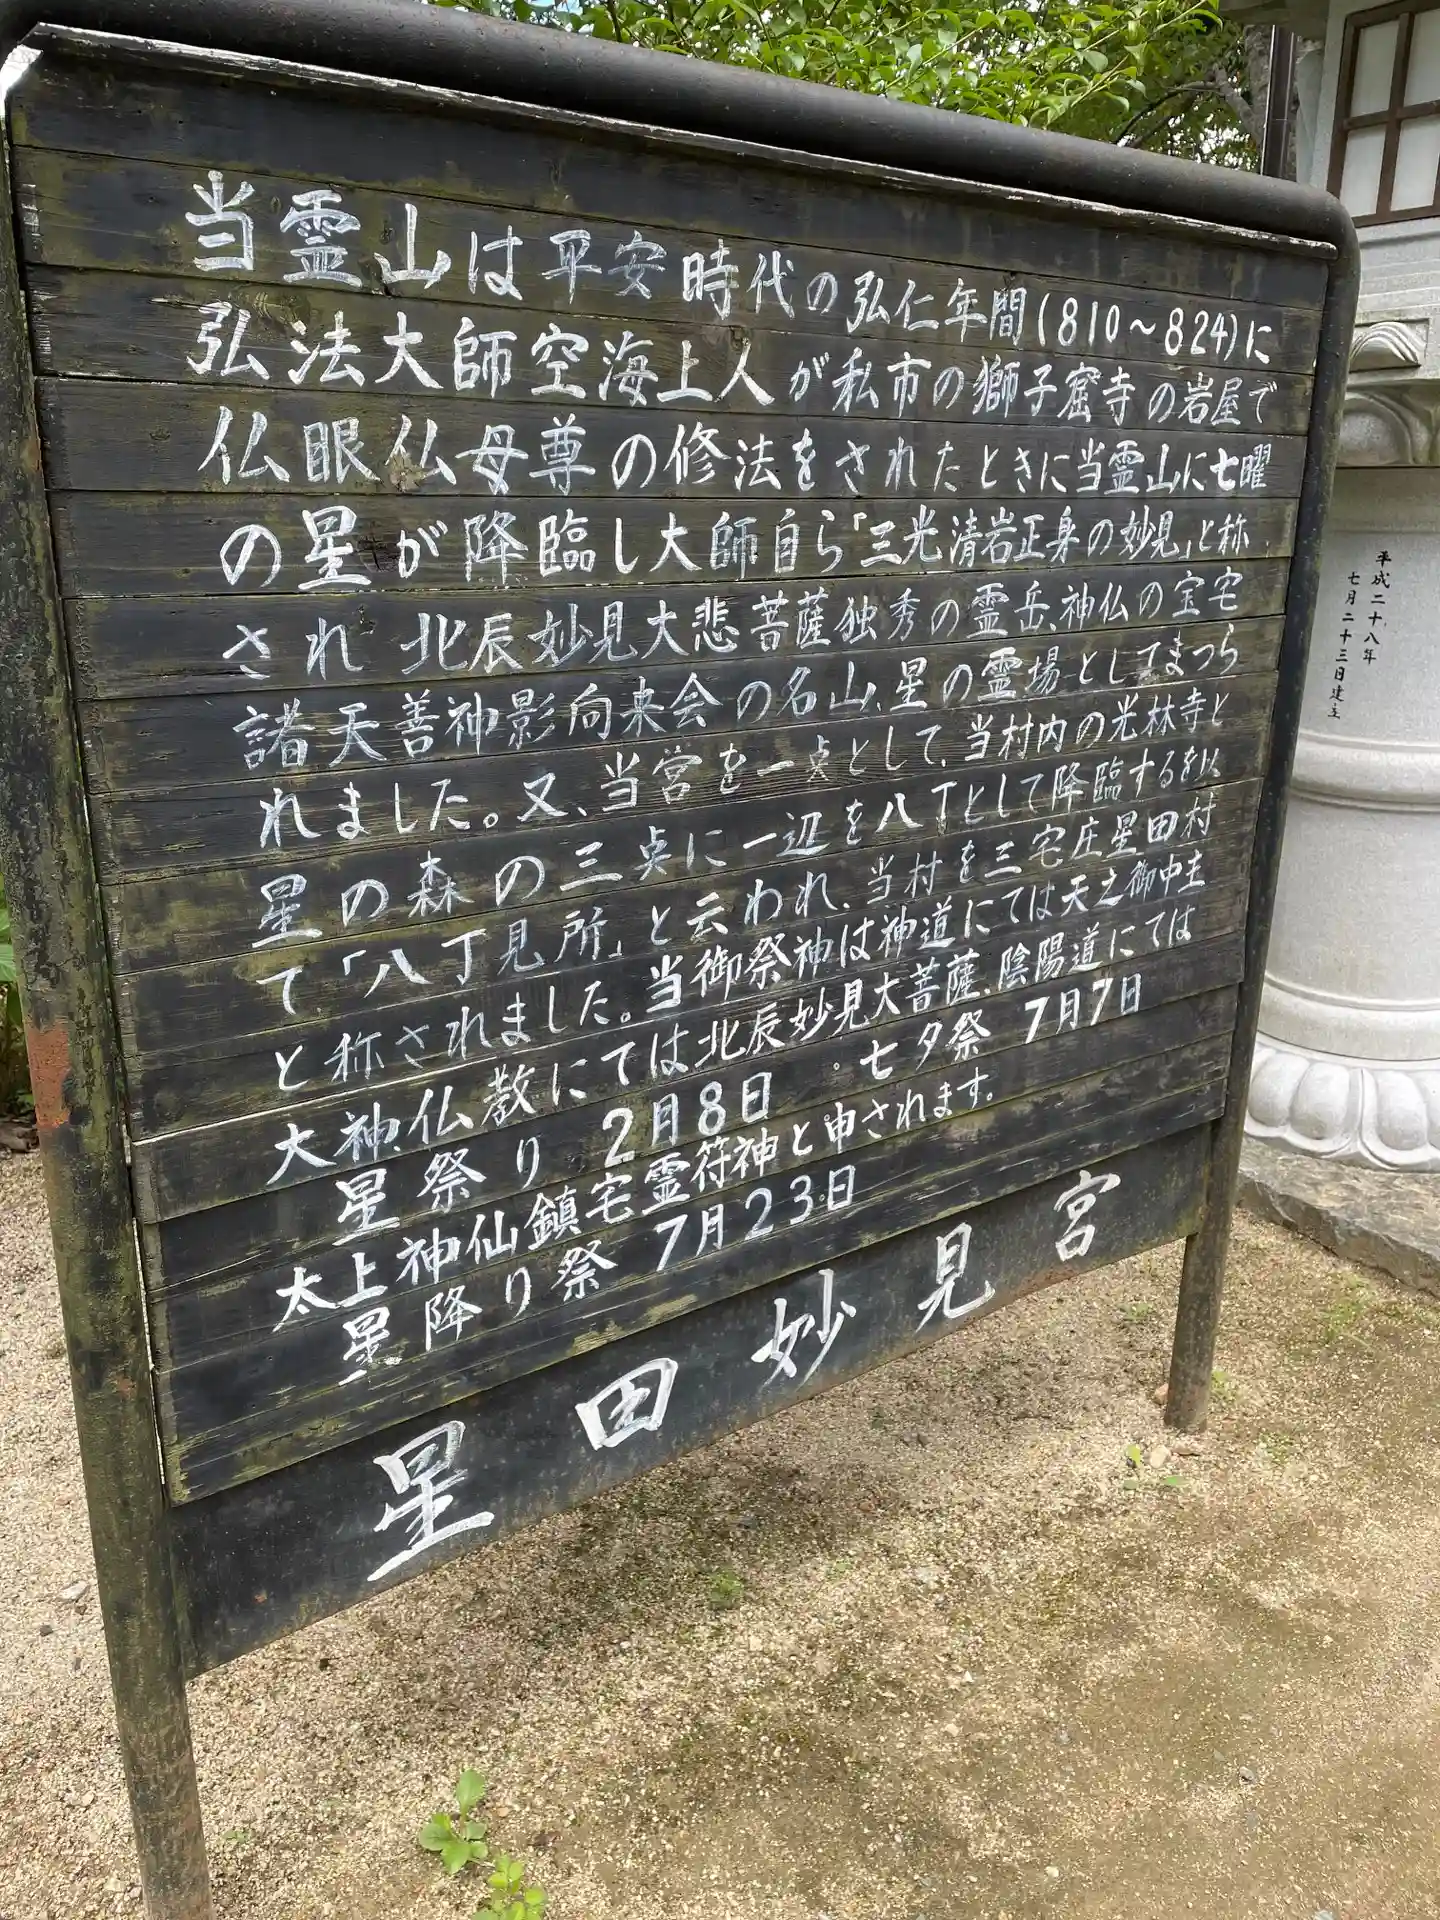 当霊山は平安時代の弘仁年間(810～824)に
弘法大師空海上人が私市の獅子窟寺の岩屋で
仏眼仏母尊の修法をされたときに当霊山に七曜
の星が降臨し大師自ら「三光清岩正身の妙見」と称
され 北辰妙見大悲菩薩独秀の霊岳、神仏の宝宅
諸天善神影向来会の名山、星の霊場としてまつら
れました。又、当宮を一点として、当村内の光林寺と
星の森の三点に一辺を八丁として降臨するを以
て「八丁見所」と云われ、当村を三宅庄星田村
と称されました。当御祭神は神道にては天之御中主
大神、仏教にては北辰妙見大菩薩、陰陽道にては
星祭り 2月8日 七夕祭 7月7日
太上神仙鎮宅霊符神と申されます。
星降り祭 7月23日
星田妙見宮
平成二十八年
七月二十三日建立